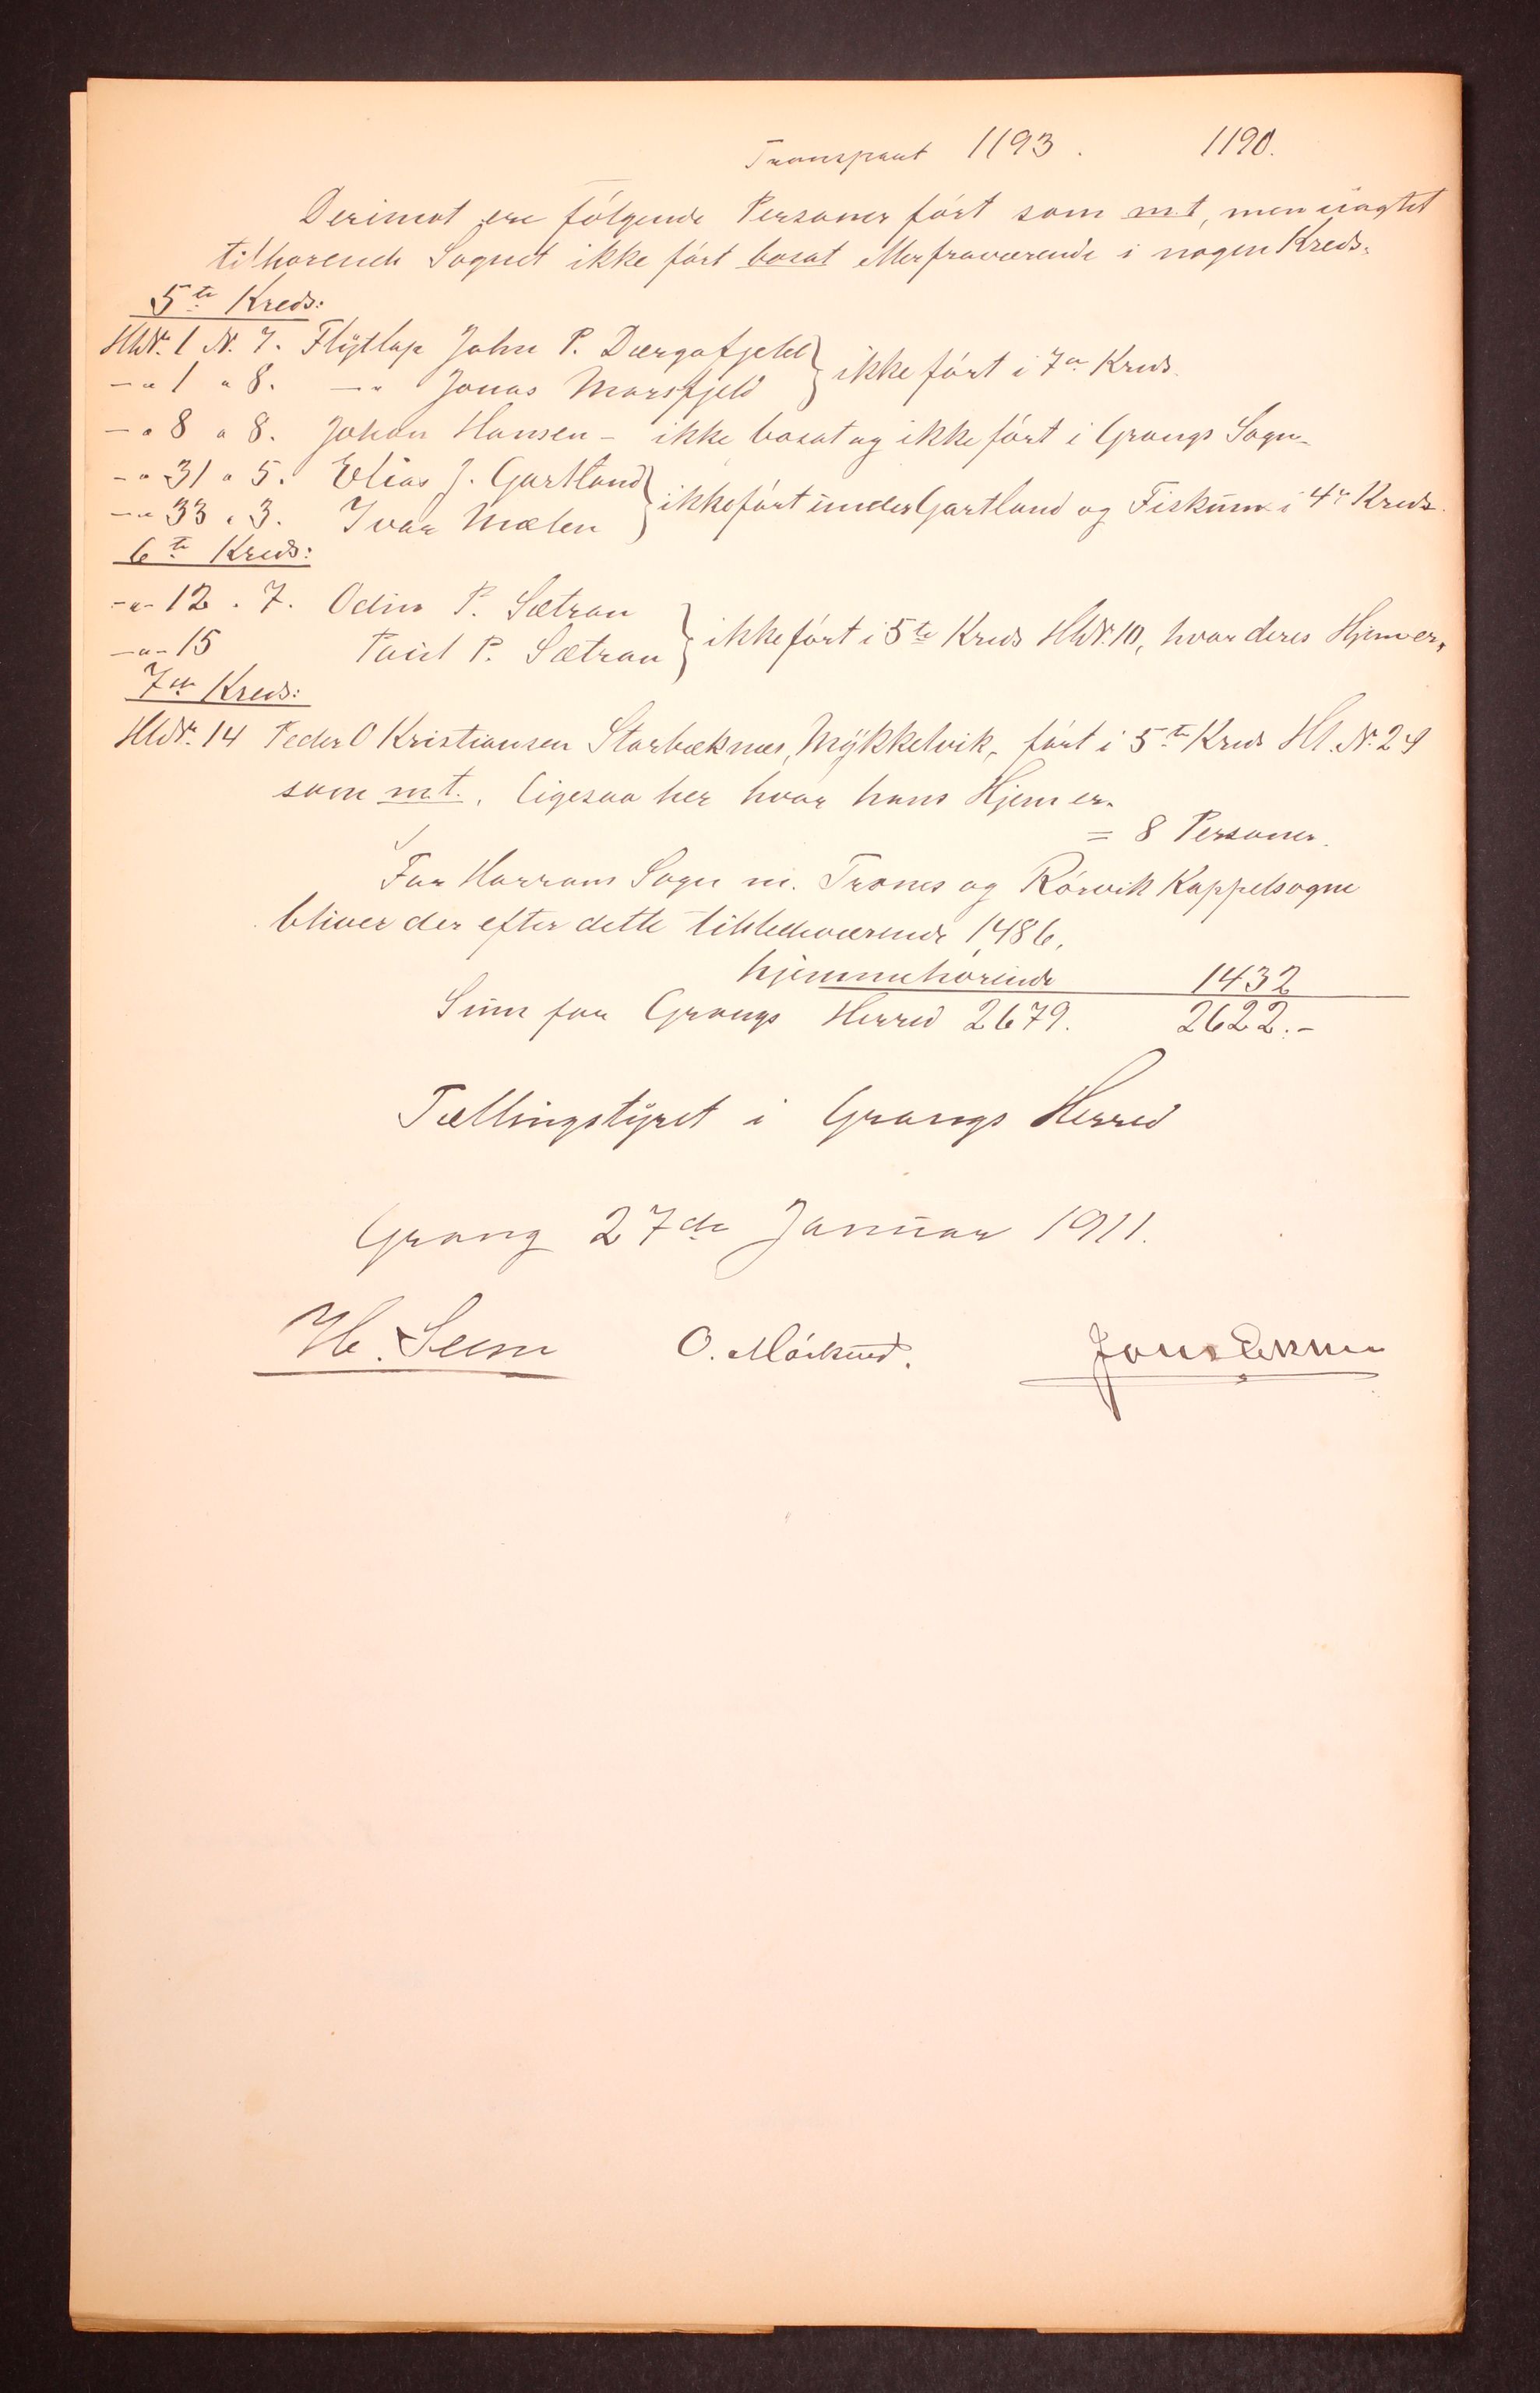 Transport 1193. 1190.
Derimot ere følgende Personer ført som mt, men uagtet
tilhørende Sognet ikke ført bosat eller fraværende i nogen Kreds.
5te Kreds:
HlNr. 1 N. 7. Flytlap John P. Dærgafjeld } ikke ført i 7de Kreds.
-"- 1 " 8. -"- Jonas Marsfjeld
-"- 8 " 8. Johan Hansen - ikke bosat og ikke ført i Grongs Sogn.
-"- 31 " 5. Elias J. Gartland } ikke ført under Gartland og Fiskum i 4de Kreds.
-"- 33 " 3. Ivar Mælen
6te Kreds:
-"- 12 " 7. Odin P. Sætran } ikke ført i 5te Kreds HlNr. 10, hvor deres Hjem er.
-"- 15 Paul P. Sætran
7de Kreds:
HlNr. 14 Peder O Kristiansen Storbæknes, Mykkelvik, ført i 5te Kreds Hl. Nr. 29
som mt., ligesaa her hvor hans Hjem er.
= 8 Personer.
For Harrans Sogn m. Trones og Rørvik Kappelsogne
bliver der efter dette tilstedeværende 1486,
hjemmehørende 1432
Sum for Grongs Herred 2679. 2622.-
Tællingstyret i Grongs Herred
Grong 27de Januar 1911.
H. Seem O. Mørkved. Jon Ekker